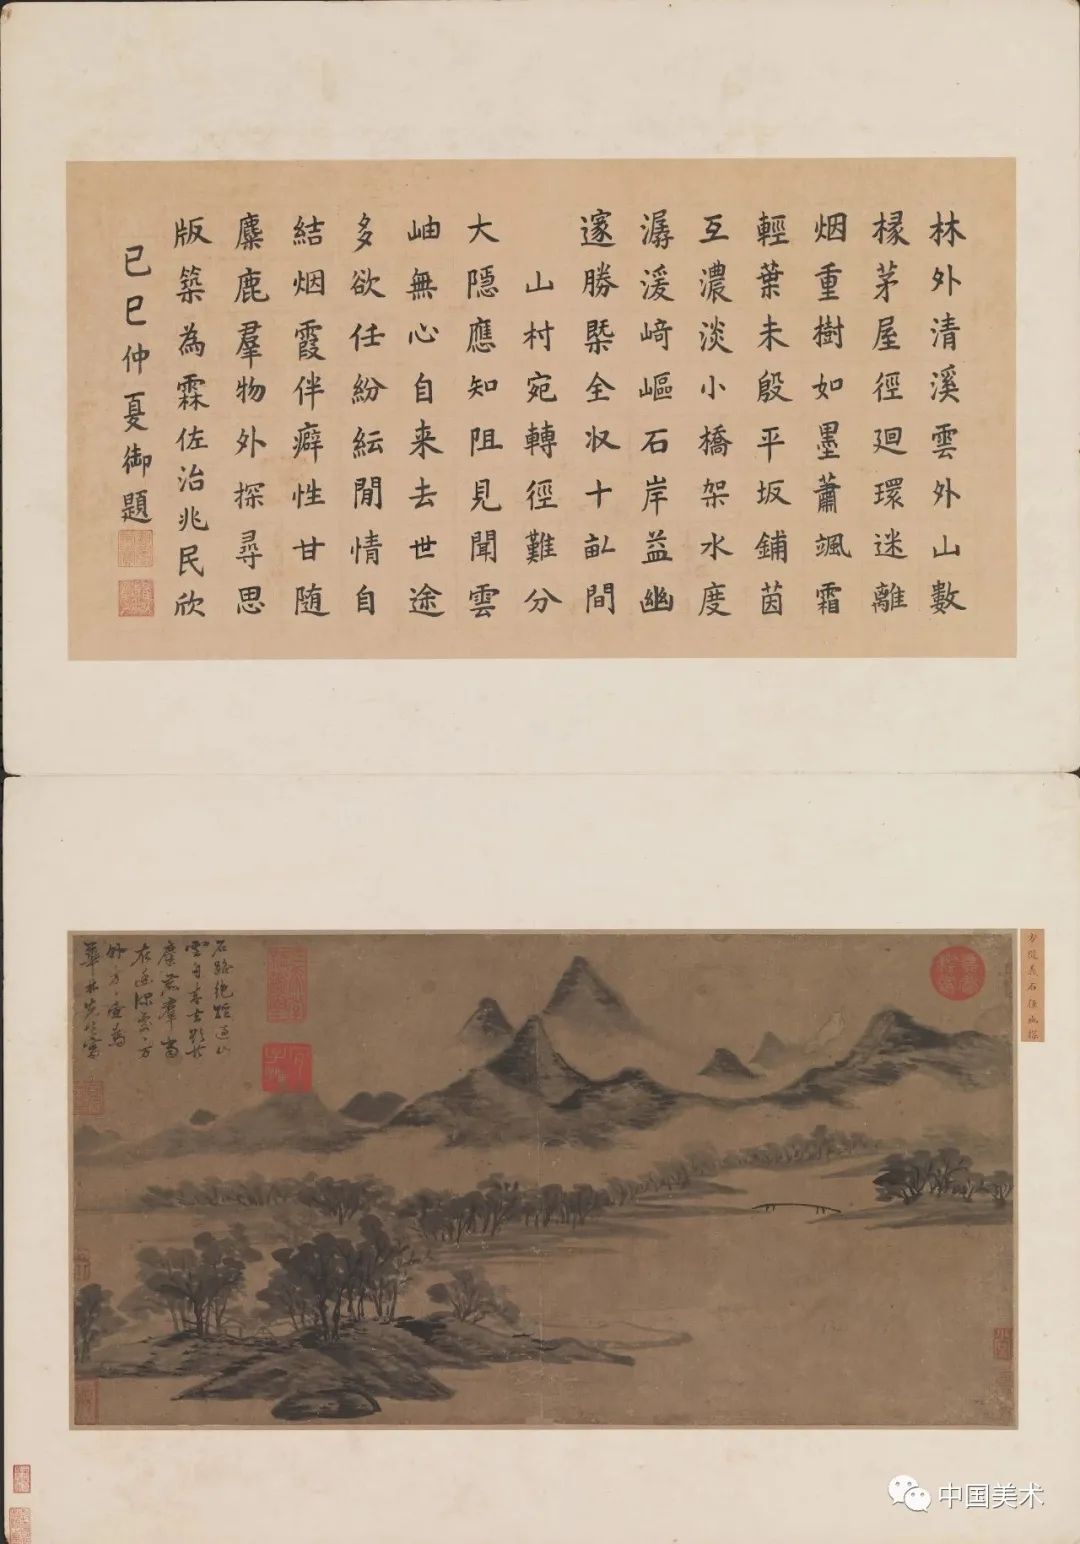 林外清溪雲外山數
椽茅屋徑迴環迷離
烟重樹如墨蕭颯霜
輕葉未殷平坂鋪茵
互濃淡小橋架水度
潺湲﨑嶇石岸益幽
邃勝槩全收十畝間
山村宛轉徑難分
大隱應知阻見聞雲
岫無心自来去世途
多欲任紛紜閒情自
結烟霞伴癖性甘随
麋鹿羣物外探尋思
版築為霖佐治兆民欣
己巳仲夏御題
方從義石徑幽探
石路絶
雲自去
麋鹿羣
方壺為
華林先生寫
中国美术